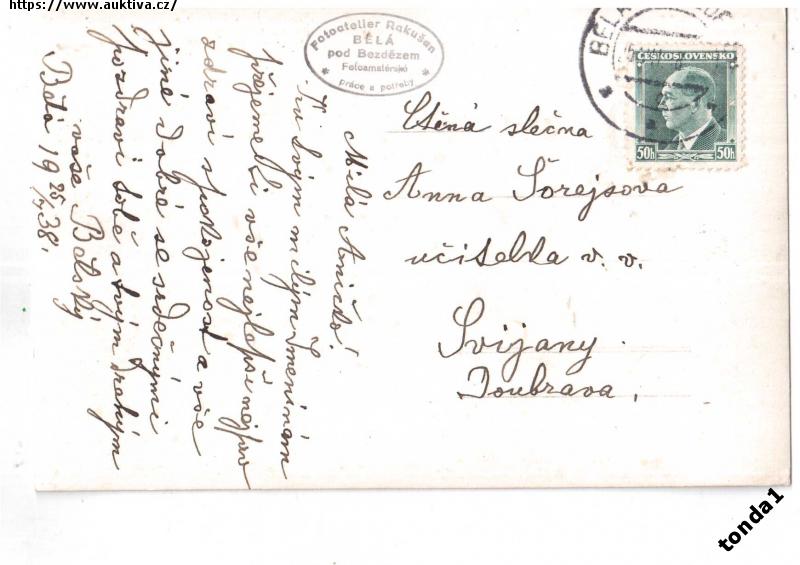 https://www.auktiva.cz/
Fotoatelier Rakušan
BĚLÁ
pod Bezdězem
Fotoamatérské
práce a potřeby
BĚLÁ
ČESKOSLOVENSKO
50h 50h
Ctěná slečna
Anna Šorejsova
učitelka v. v.
Svijany
Doubrava.
Milá Aničko!
Svým milým Jmeninám
přejeme Ti vše nejlepší nejprv
zdraví spokojenost a vše
jiné dobré se srdečnými
pozdravi Tobě a tvým drahým
vaše Bělský
Bělá 19 25/7 38.
tonda1